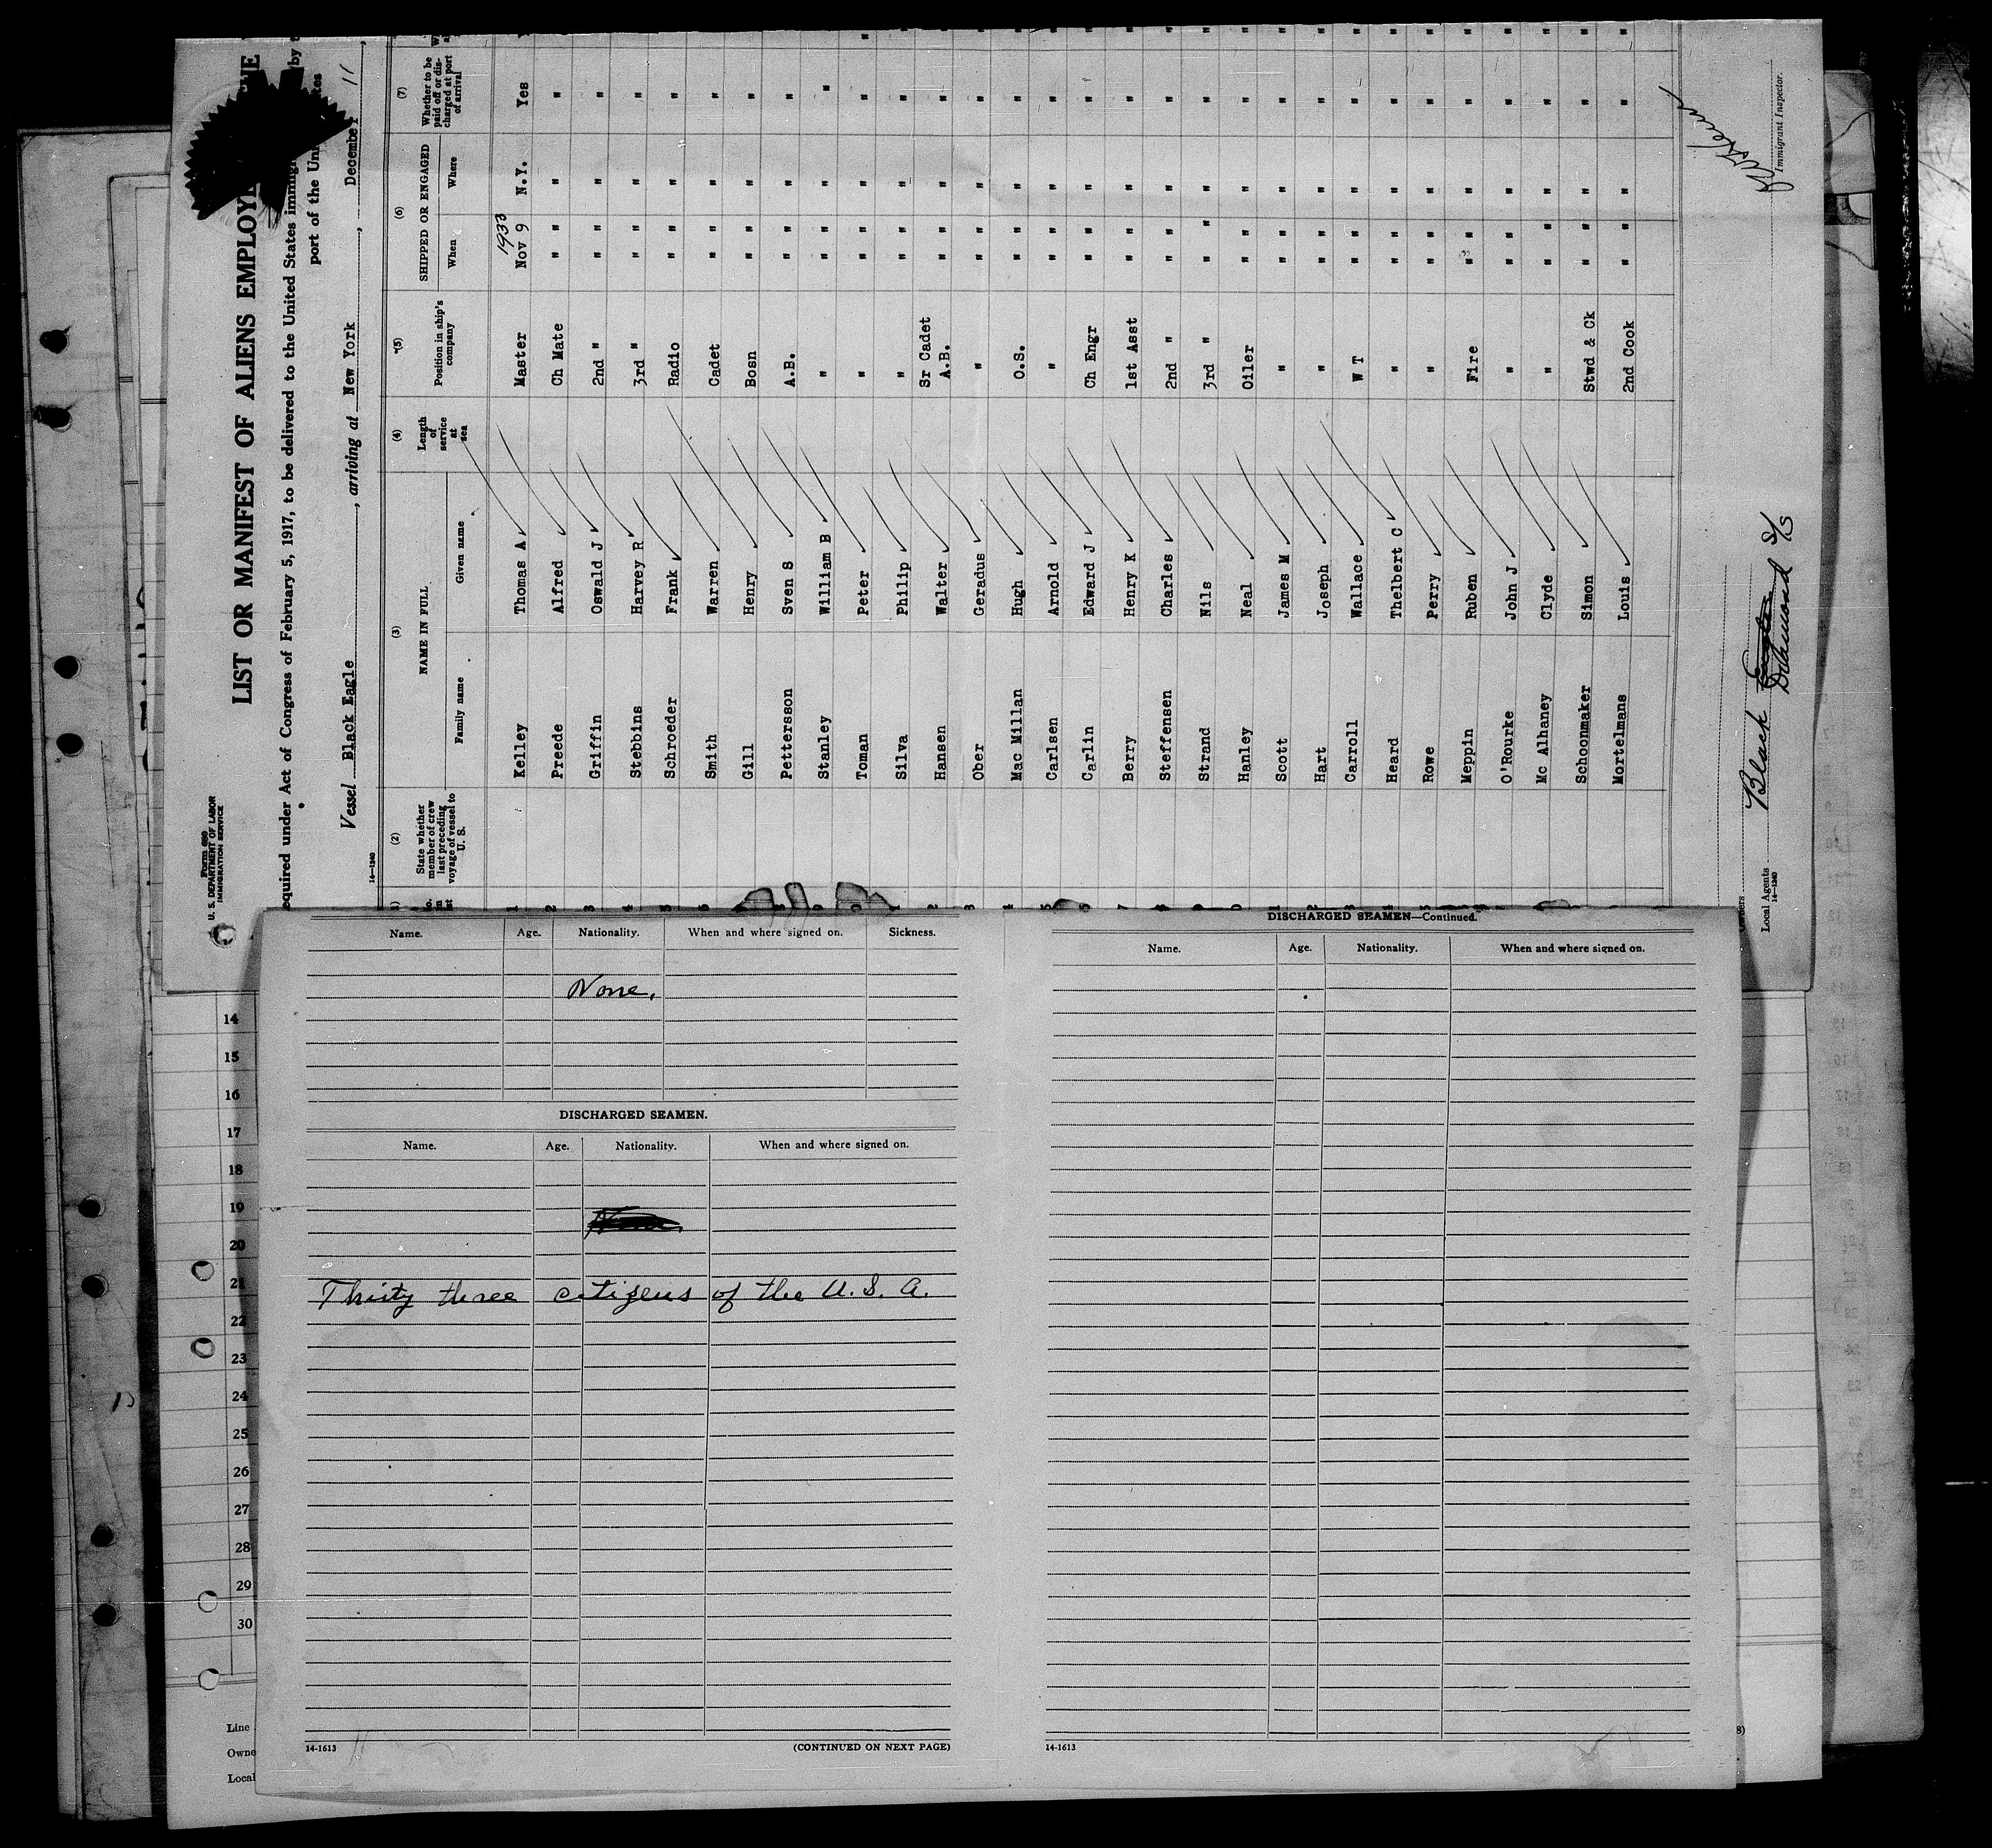 Form 680
U. S. DEPARTMENT OF LABOR
IMMIGRATION SERVICE
LIST OR MANIFEST OF ALIENS EMPLOY
equired under Act of Congress of February 5, 1917, to be delivered to the United States immigr by
port of the Uni tes
Vessel Black Eagle, arriving at New York, December 11,
14—1240
(2) (3) (4) (5) (6) (7)
State whether member of crew last preceding voyage of vessel to U. S. NAME IN FULL Length of service at sea Position in ship's company SHIPPED OR ENGAGED Whether to be paid off or discharged at port of arrival
Family name Given name When Where
1933
1 Kelley Thomas A Master Nov 9 N.Y. Yes
2 Preede Alfred Ch Mate " " " "
3 Griffin Oswald J 2nd " " " " "
4 Stebbins Harvey R 3rd " " " " "
5 Schroeder Frank Radio " " " "
6 Smith Warren Cadet " " " "
Gill Henry Bosn " " " "
8 Pettersson Sven S A.B. " " " "
9 Stanley William B " " " " "
0 Toman Peter " " " " "
1 Silva Philip " " " " "
2 Hansen Walter Sr Cadet A.B. " " " "
3 Ober Geradus " " " " "
4 Mac Millan Hugh O.S. " " " "
5 Carlsen Arnold " " " " "
6 Carlin Edward J Ch Engr " " " "
7 Berry Henry K 1st Asst " " " "
8 Steffensen Charles 2nd " " " " "
9 Strand Nils 3rd " " " " "
0 Hanley Neal Oiler " " " "
1 Scott James M " " " " "
2 Hart Joseph " " " " "
3 Carroll Wallace W T " " " "
4 Heard Thelbert C " " " " "
5 Rowe Perry " " " " "
6 Meppin Ruben Fire " " " "
O'Rourke John J " " " " "
Mc Alhaney Clyde " " " " "
Schoonmaker Simon Stwd & Ck " " " "
Mortelmans Louis 2nd Cook " " " "
Immigrant Inspector.
Owners
Local Agents Black Diamond S/S
14—1240
Name. Age. Nationality. When and where signed on. Sickness.
None.
DISCHARGED SEAMEN.
Name. Age. Nationality. When and where signed on.
None.
Thirty three citizens of the U. S. A.
14-1613 (CONTINUED ON NEXT PAGE)
DISCHARGED SEAMEN—Continued.
Name. Age. Nationality. When and where signed on.
14-1613
14
15
16
17
18
19
20
21
22
23
24
25
26
27
28
29
30
Line
Owne
Local